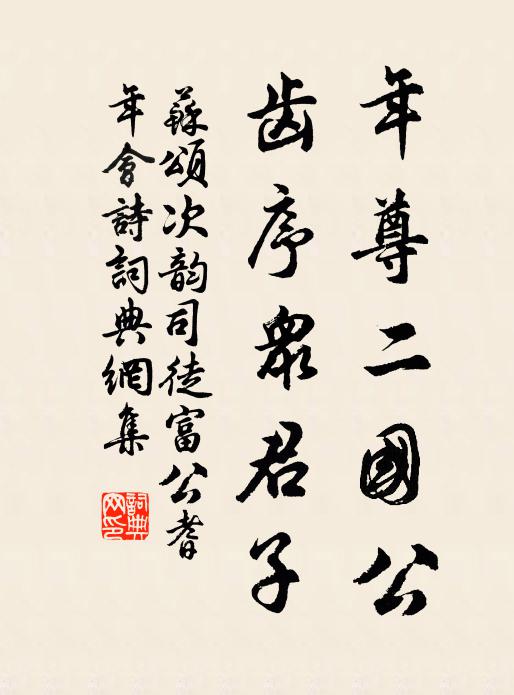 年尊二國公
齿序眾君子
蘇頌次韵司徒富公耆
年會詩詞典網集
詞典网印